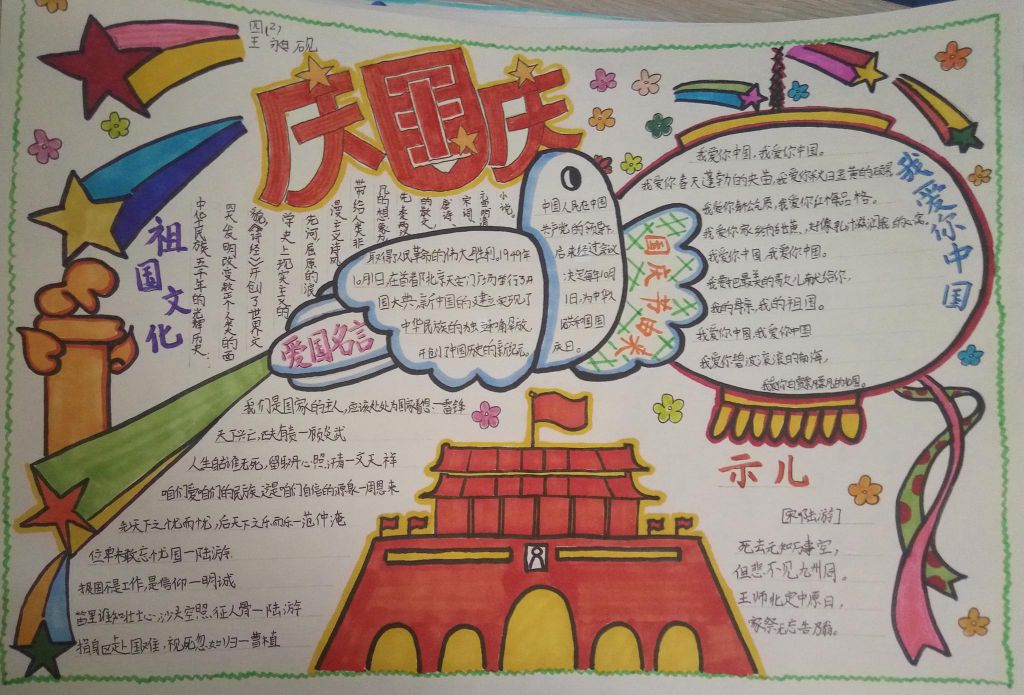 四(2)
王
庆国庆
祖国文化
中华民族五千年的光辉历史,
四大发明改变整个人类的面
貌《诗经》开创了世界文
学史上现实主义的
先河,屈原的浪
漫主义诗风
带给人类非
凡的想象力
唐诗、
宋词、
小说,
中国人民在中国
共产党的领导下,
取得了人民革命的伟大胜利。1949年
10月1日,在首都北京天安门广场举行了开
国大典,新中国的建立实现了
中华民族的独立和解放,
开创了中国历史的新纪元。
后来经过会议
决定每年10月
1日,为中华人
民共和国国
庆日。
国庆节由来
我爱你中国
我爱你中国,我爱你中国。
我爱你春天蓬勃的秧苗,我爱你秋日金黄的硕果
我爱你青松气质,我爱你红梅品格。
我爱你家乡的甜蔗,好像乳汁滋润着我的心窝,
我爱你中国,我爱你中国。
我要把最美的歌儿献给你,
我的母亲,我的祖国。
我爱你中国,我爱你中国
我爱你碧波滚滚的南海,
我爱你白雪飘飘的北国。
爱国名言
我们是国家的主人,应该处处为国家着想一雷锋
天下兴亡,匹夫有责一顾炎武
人生自古谁无死,留取丹心照汗青一文天祥
咱们爱咱们的民族,这是咱们自信的源泉一周恩来
先天下之忧而忧,后天下之乐而乐一范仲淹
位卑未敢忘忧国一陆游
报国不是工作,是信仰一明诚
笛里谁知壮士心,沙头空照征人骨一陆游
捐身赴国难,视死忽如归一曹植
示儿
[宋 陆游]
死去元知万事空,
但悲不见九州同。
王师北定中原日,
家祭无忘告乃翁。